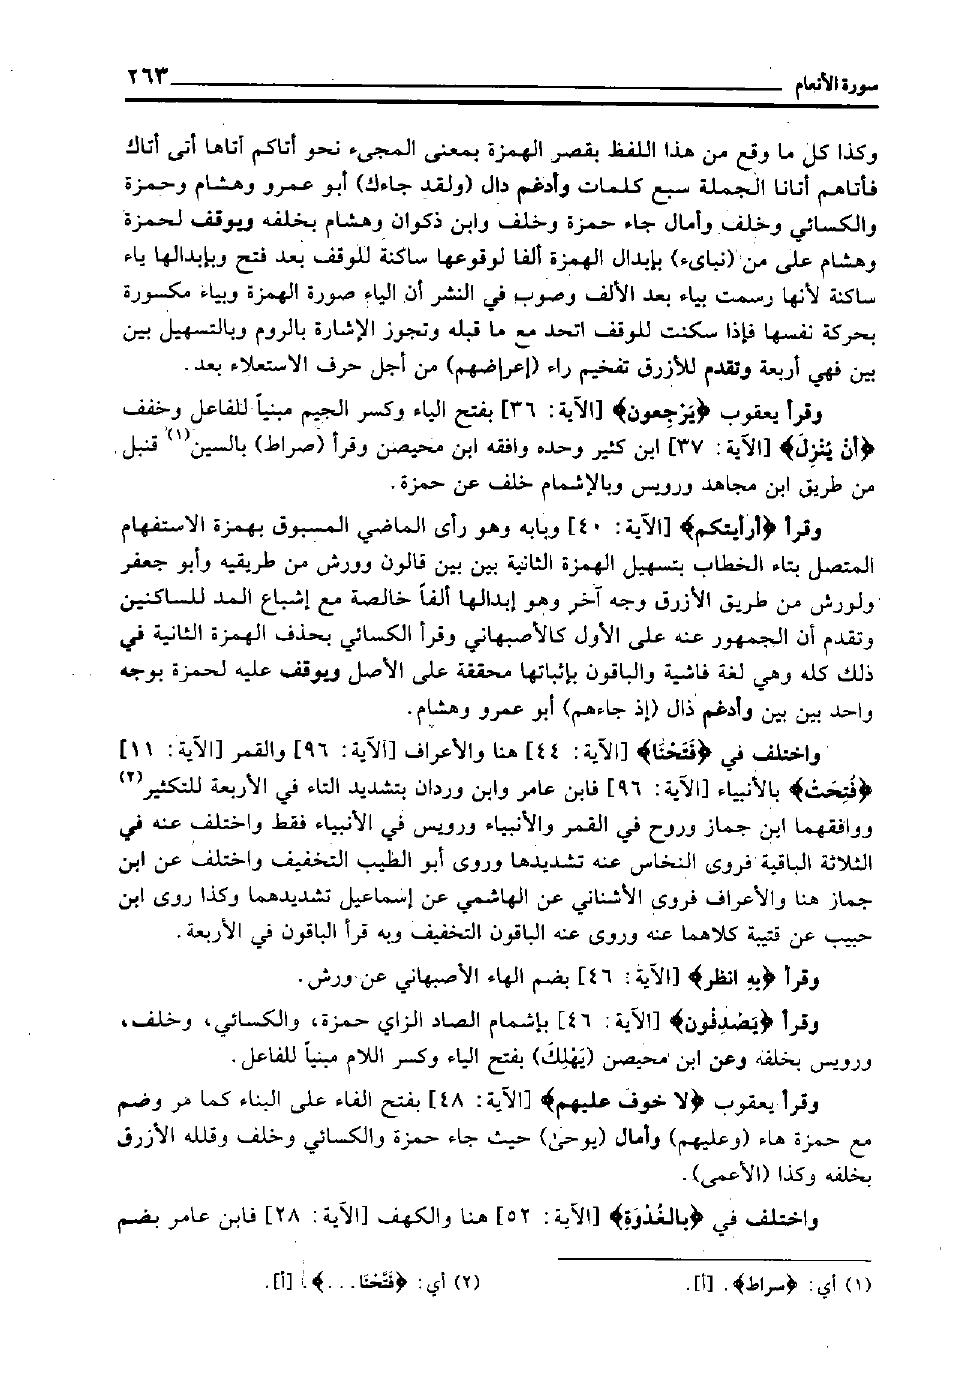 سورة الأنعام ٢٦٣
وكذا كل ما وقع من هذا اللفظ بقصر الهمزة بمعنى المجيء نحو أتاكم أتاها أتى أتاك
فأتاهم أتانا الجملة سبع كلمات وأدغم دال (ولقد جاءك) أبو عمرو وهشام وحمزة
والكسائي وخلف وأمال جاء حمزة وخلف وابن ذكوان وهشام بخلفه ويوقف لحمزة
وهشام على من (نباىء) بإبدال الهمزة ألفا لوقوعها ساكنة للوقف بعد فتح وبإبدالها ياء
ساكنة لأنها رسمت بياء بعد الألف وصوب في النشر أن الياء صورة الهمزة وبياء مكسورة
بحركة نفسها فإذا سكنت للوقف اتحد مع ما قبله وتجوز الإشارة بالروم وبالتسهيل بين
بين فهي أربعة وتقدم للأزرق تفخيم راء (إعراضهم) من أجل حرف الاستعلاء بعد.
وقرأ يعقوب ﴿يَرْجِعون﴾ [الآية: ٣٦] بفتح الياء وكسر الجيم مبنياً للفاعل وخفف
﴿أن يُنْزِلَ﴾ [الآية: ٣٧] ابن كثير وحده وافقه ابن محيصن وقرأ (صراط) بالسين(١) قنبل
من طريق ابن مجاهد ورويس وبالإشمام خلف عن حمزة.
وقرأ ﴿أرأيتكم﴾ [الآية: ٤٠] وبابه وهو رأى الماضي المسبوق بهمزة الاستفهام
المتصل بتاء الخطاب بتسهيل الهمزة الثانية بين بين قالون وورش من طريقيه وأبو جعفر
ولورش من طريق الأزرق وجه آخر وهو إبدالها ألفاً خالصة مع إشباع المد للساكنين
وتقدم أن الجمهور عنه على الأول كالأصبهاني وقرأ الكسائي بحذف الهمزة الثانية في
ذلك كله وهي لغة فاشية والباقون بإثباتها محققة على الأصل ويوقف عليه لحمزة بوجه
واحد بين بين وأدغم ذال (إذ جاءهم) أبو عمرو وهشام.
واختلف في ﴿فَتَحْنَا﴾ [الآية: ٤٤] هنا والأعراف [الآية: ٩٦] والقمر [الآية: ١١]
﴿فُتِحَتْ﴾ بالأنبياء [الآية: ٩٦] فابن عامر وابن وردان بتشديد التاء في الأربعة للتكثير(٢)
ووافقهما ابن جماز وروح في القمر والأنبياء ورويس في الأنبياء فقط واختلف عنه في
الثلاثة الباقية فروى النخاس عنه تشديدها وروى أبو الطيب التخفيف واختلف عن ابن
جماز هنا والأعراف فروى الأشناني عن الهاشمي عن إسماعيل تشديدهما وكذا روى ابن
حبيب عن قتيبة كلاهما عنه وروى عنه الباقون التخفيف وبه قرأ الباقون في الأربعة.
وقرأ ﴿بهِ انظر﴾ [الآية: ٤٦] بضم الهاء الأصبهاني عن ورش.
وقرأ ﴿يَصْدِفُون﴾ [الآية: ٤٦] بإشمام الصاد الزاي حمزة، والكسائي، وخلف،
ورويس بخلفه وعن ابن محيصن (يَهْلِكَ) بفتح الياء وكسر اللام مبنياً للفاعل.
وقرأ يعقوب ﴿لا خوفَ عليهم﴾ [الآية: ٤٨] بفتح الفاء على البناء كما مر وضم
مع حمزة هاء (وعليهم) وأمال (يوحىٰ) حيث جاء حمزة والكسائي وخلف وقلله الأزرق
بخلفه وكذا (الأعمى).
واختلف في ﴿بالغُدْوَةِ﴾ [الآية: ٥٢] هنا والكهف [الآية: ٢٨] فابن عامر بضم
(١) أي: ﴿سراط﴾. [أ]. (٢) أي: ﴿فَتَّحْنَا...﴾. [أ].